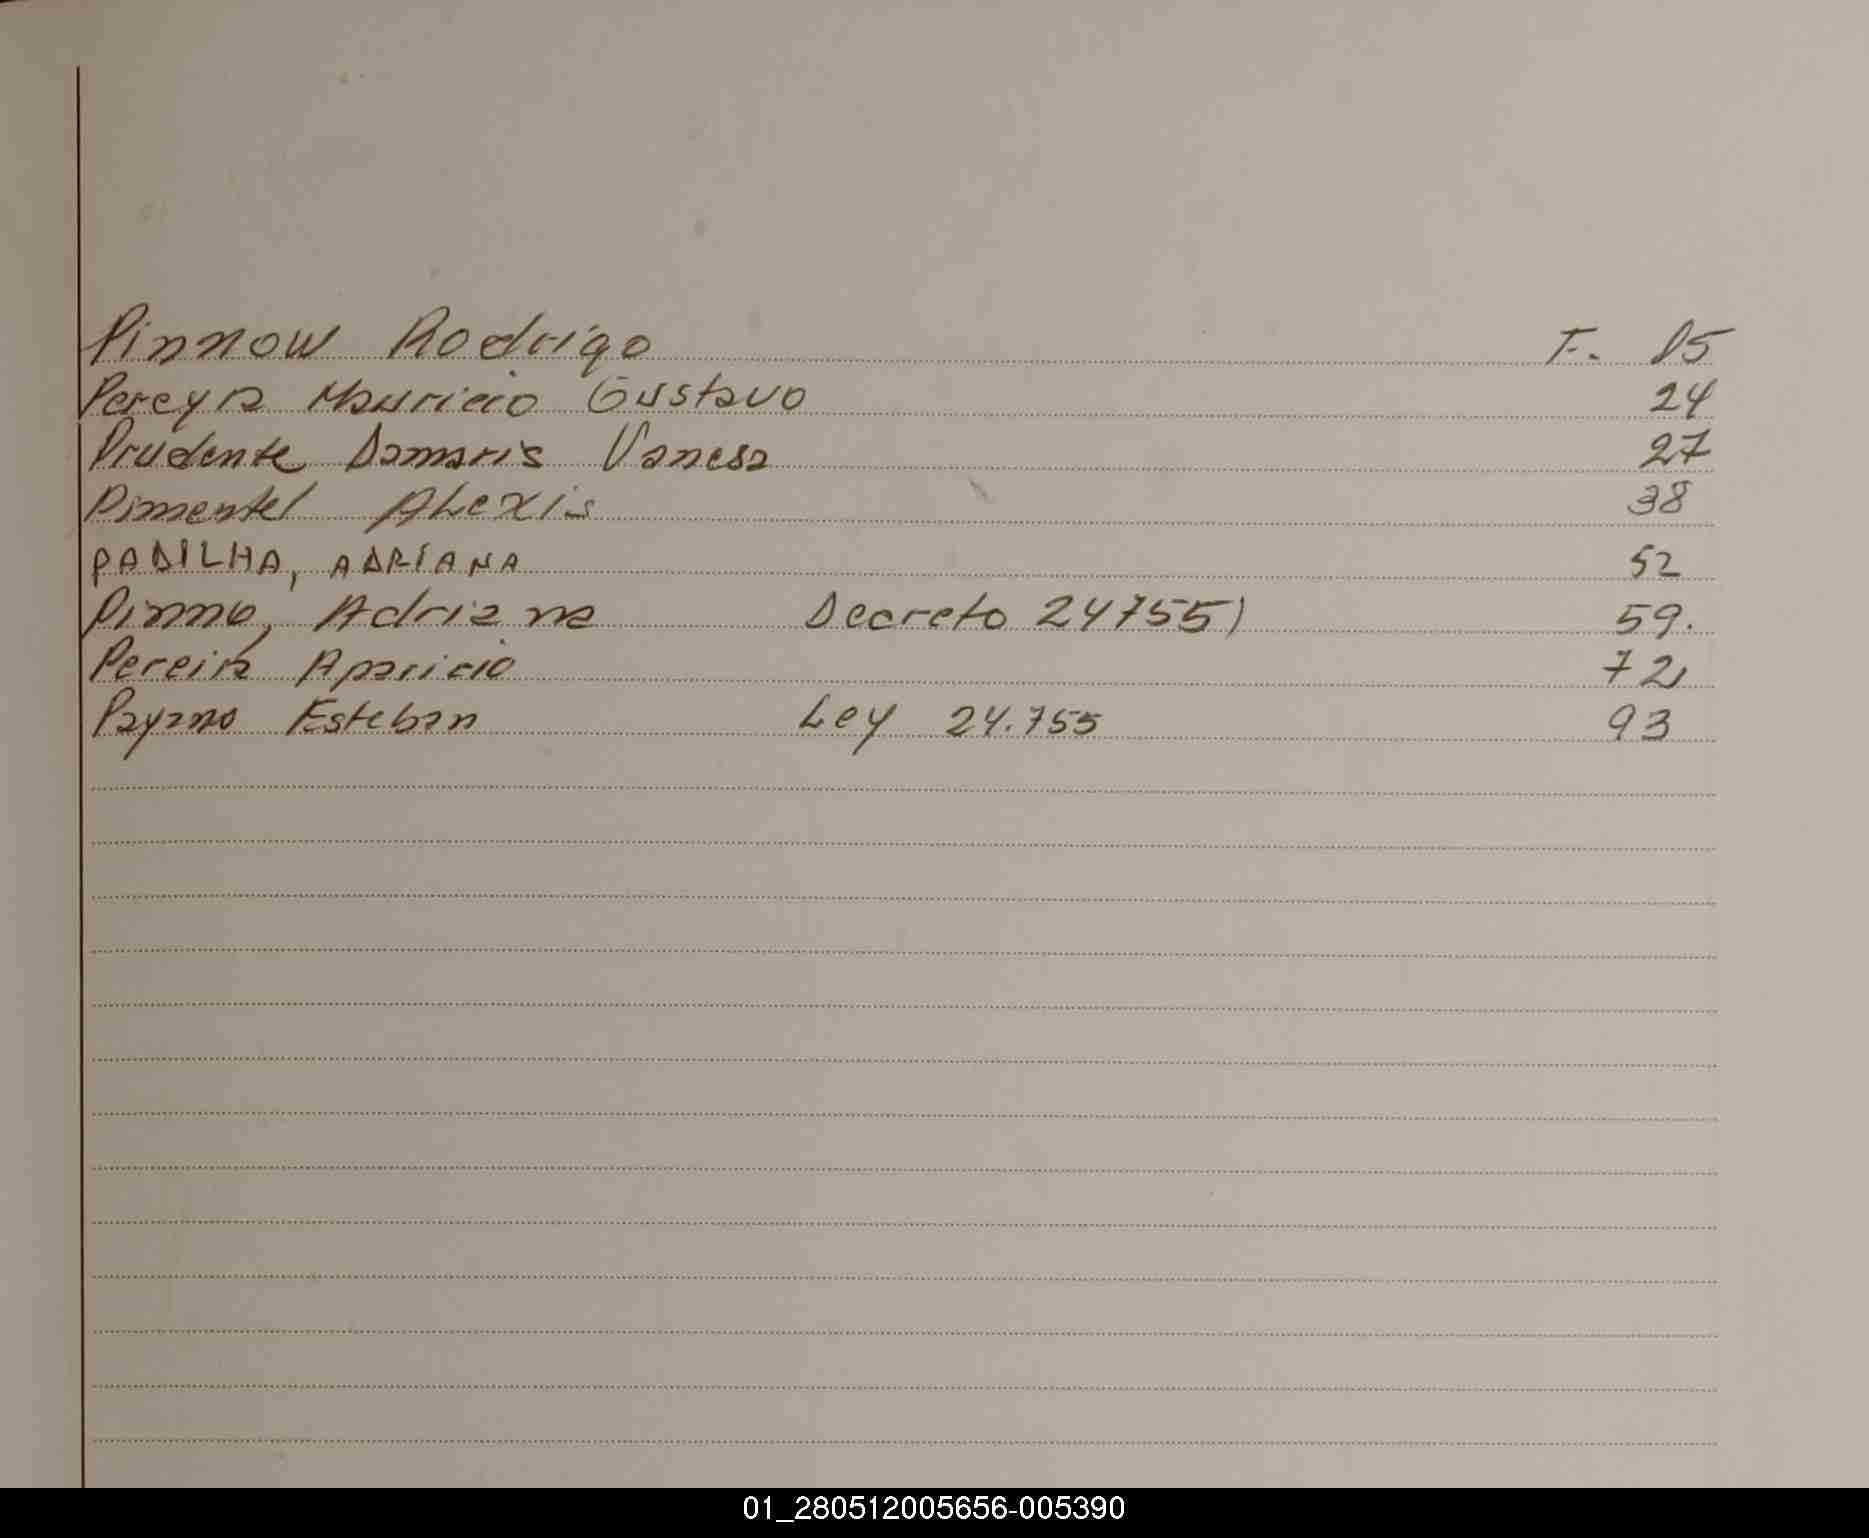 Pinnow Rodrigo F. 15
Pereyra Mauricio Gustavo 24
Prudente Damaris Vanesa 27
Pimentel Alexis 38
PADILHA, ADRIANA 52
Pinno, Adriana Decreto 24755) 59.
Pereira Aparicio 72
Payano Esteban Ley 24.755 93
01_280512005656-005390